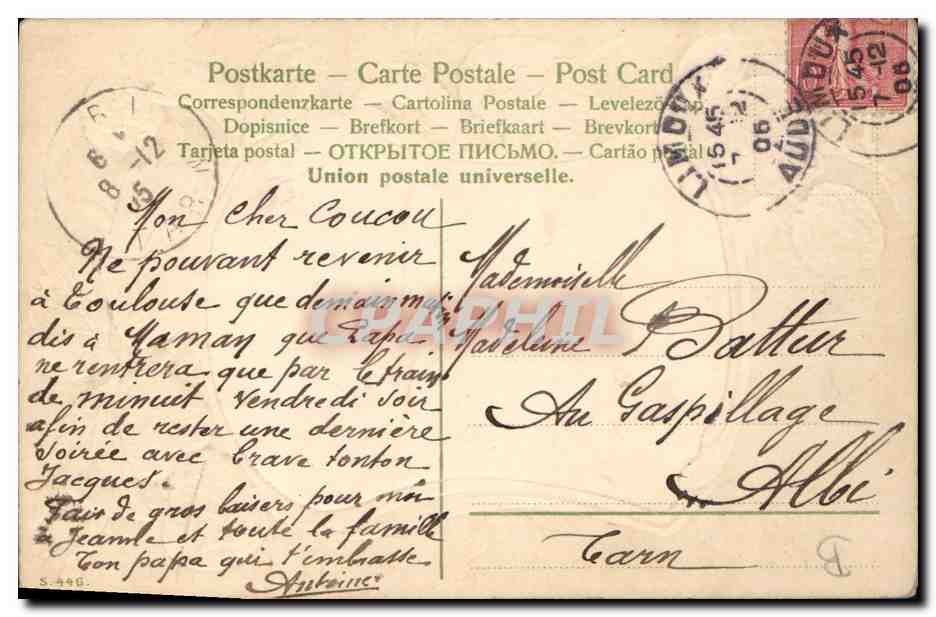 Postkarte – Carte Postale – Post Card
Correspondenzkarte – Cartolina Postale – Levelező
Dopisnice – Brefkort – Briefkaart – Brevkort
Tarjeta postal – ОТКРЫТОЕ ПИСЬМО. – Cartão postal
Union postale universelle.
LIMOUX
15 45
7 12
06
AUDE
LIMOUX
15 45
7 -12
06
8 -12
Mon cher Coucou
Ne pouvant revenir
à Toulouse que demain
dis à Maman que Papa
ne rentrera que par le train
de minuit Vendredi soir
afin de rester une dernière
soirée avec brave tonton
Jacques.
Fais de gros baisers pour moi
à Jeanne et toute la famille
Ton papa qui t'embrasse
Antoine
Mademoiselle
Madeleine Battur
Au Gaspillage
Albi
Tarn
B
S. 446.
CPAPHIL